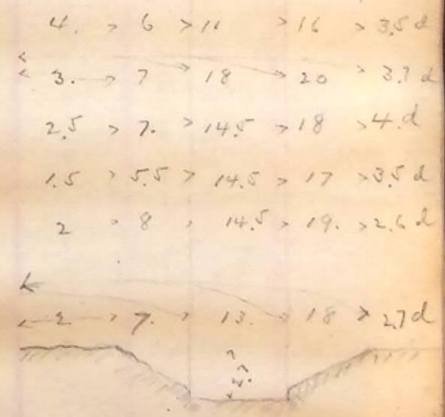 4. > 6 > 11 > 16 > 3.5 d
3. > 7 18 20 > 3.7 d
2.5 > 7. > 14.5 > 18 > 4. d
1.5 > 5.5 > 14.5 > 17 > 3.5 d
2 > 8 14.5 > 19. > 2.6 d
2 > 7. 13. > 18 > 2.7 d